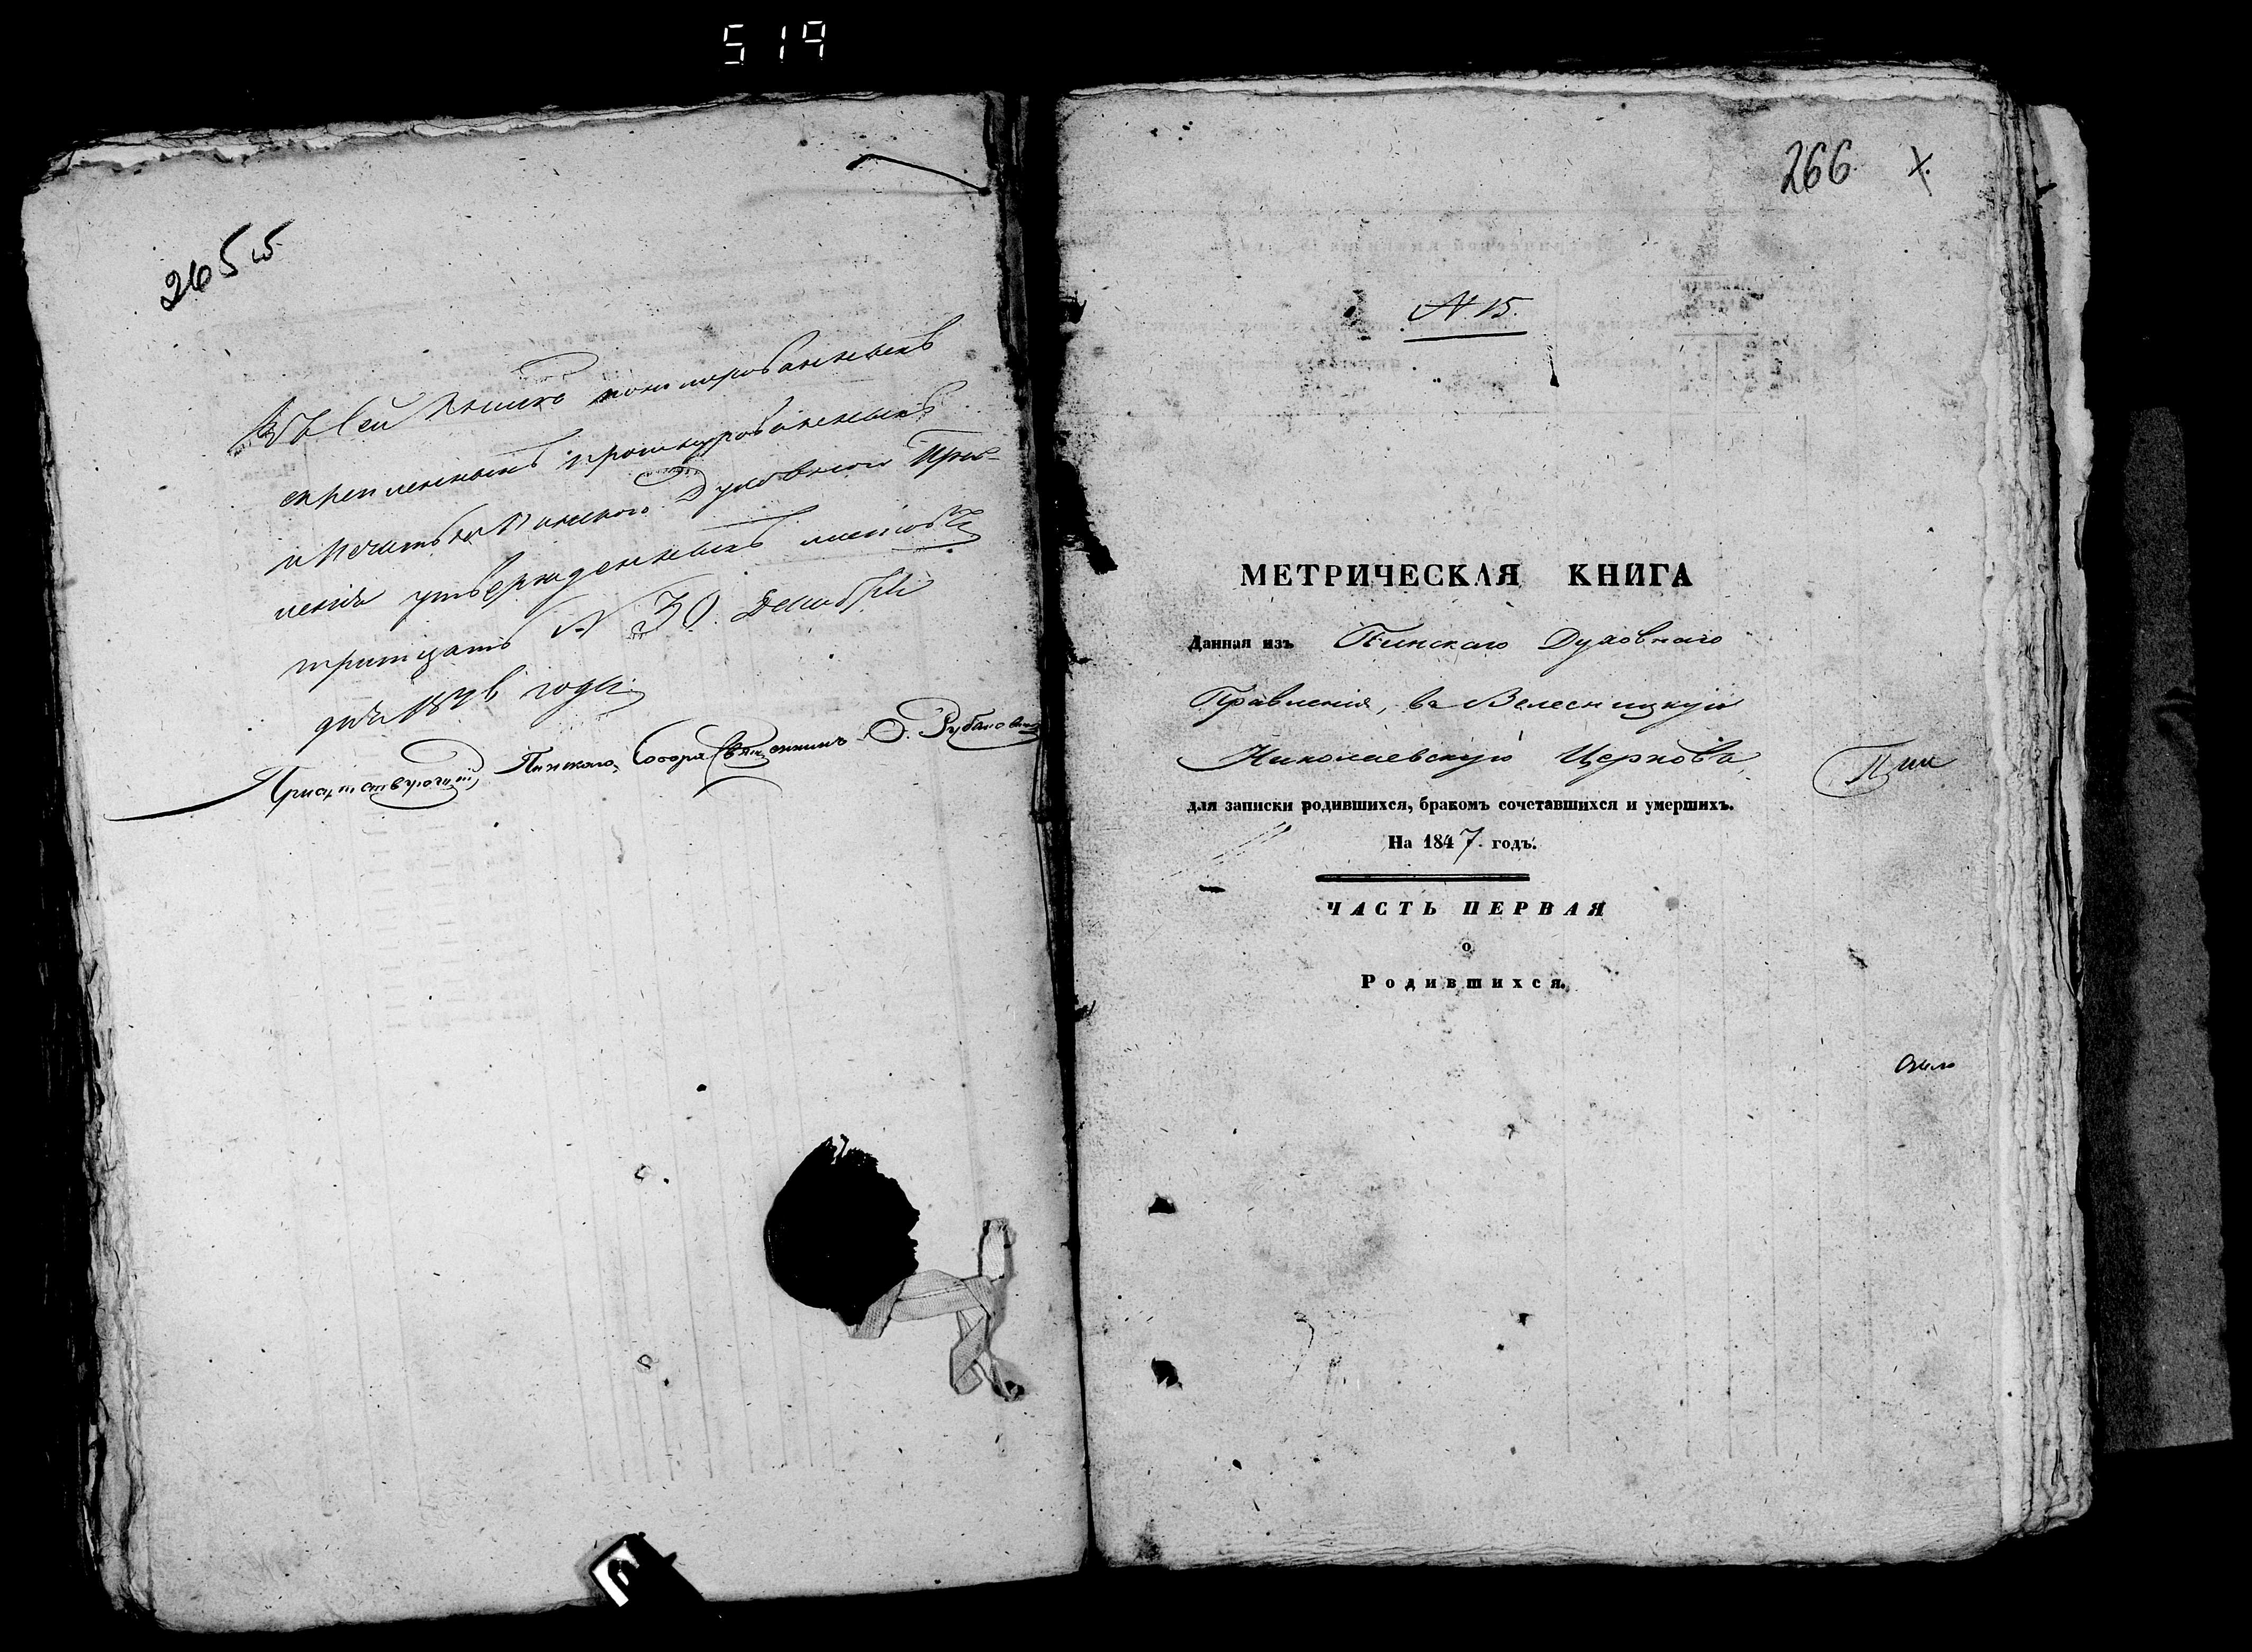 519
265 об
Въ сей книге нонмерованныхъ
скрепленныхъ прошнурованныхъ
и печатью Пинскаго Духовного Прав-
ления утвержденныхъ листовъ
тритцать N 30. Декабря
дня 1846 года.
Присутствующий Пинскаго Собора Священникъ
266
N 15.
МЕТРИЧЕСКАЯ КНИГА
Данная изъ Пинскаго Духовнаго
Правленія, въ Велесницкую
Николаевскую Церковь
для записки родившихся, бракомъ сочетавшихся и умершихъ.
На 1847 годъ.
ЧАСТЬ ПЕРВАЯ
о
Родившихся.